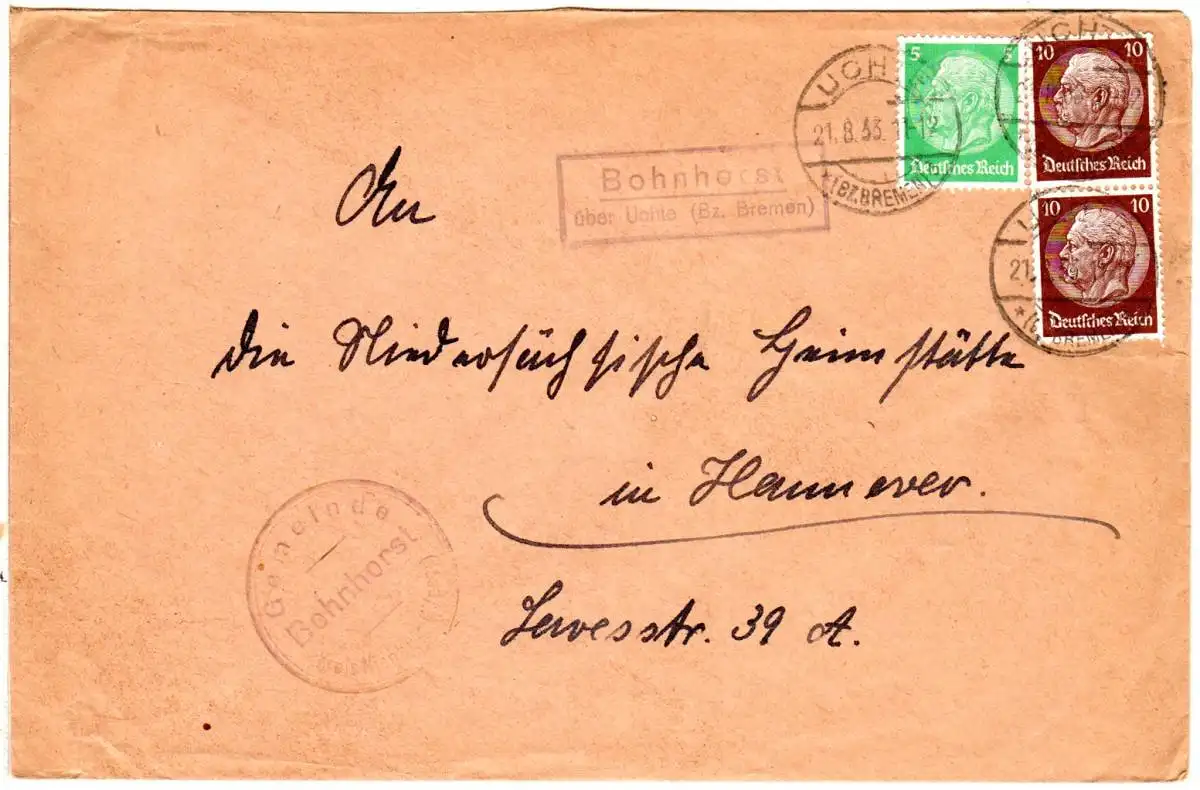 5 5
Deutsches Reich
10 10
Deutsches Reich
10 10
Deutsches Reich
UCHTE
21.8.33.11-12
*(BZ.BREMEN)
Bohnhorst
über Uchte (Bz. Bremen)
An
die Niedersächsische Heimstätte
in Hannover.
39 A.
Gemeinde
Bohnhorst